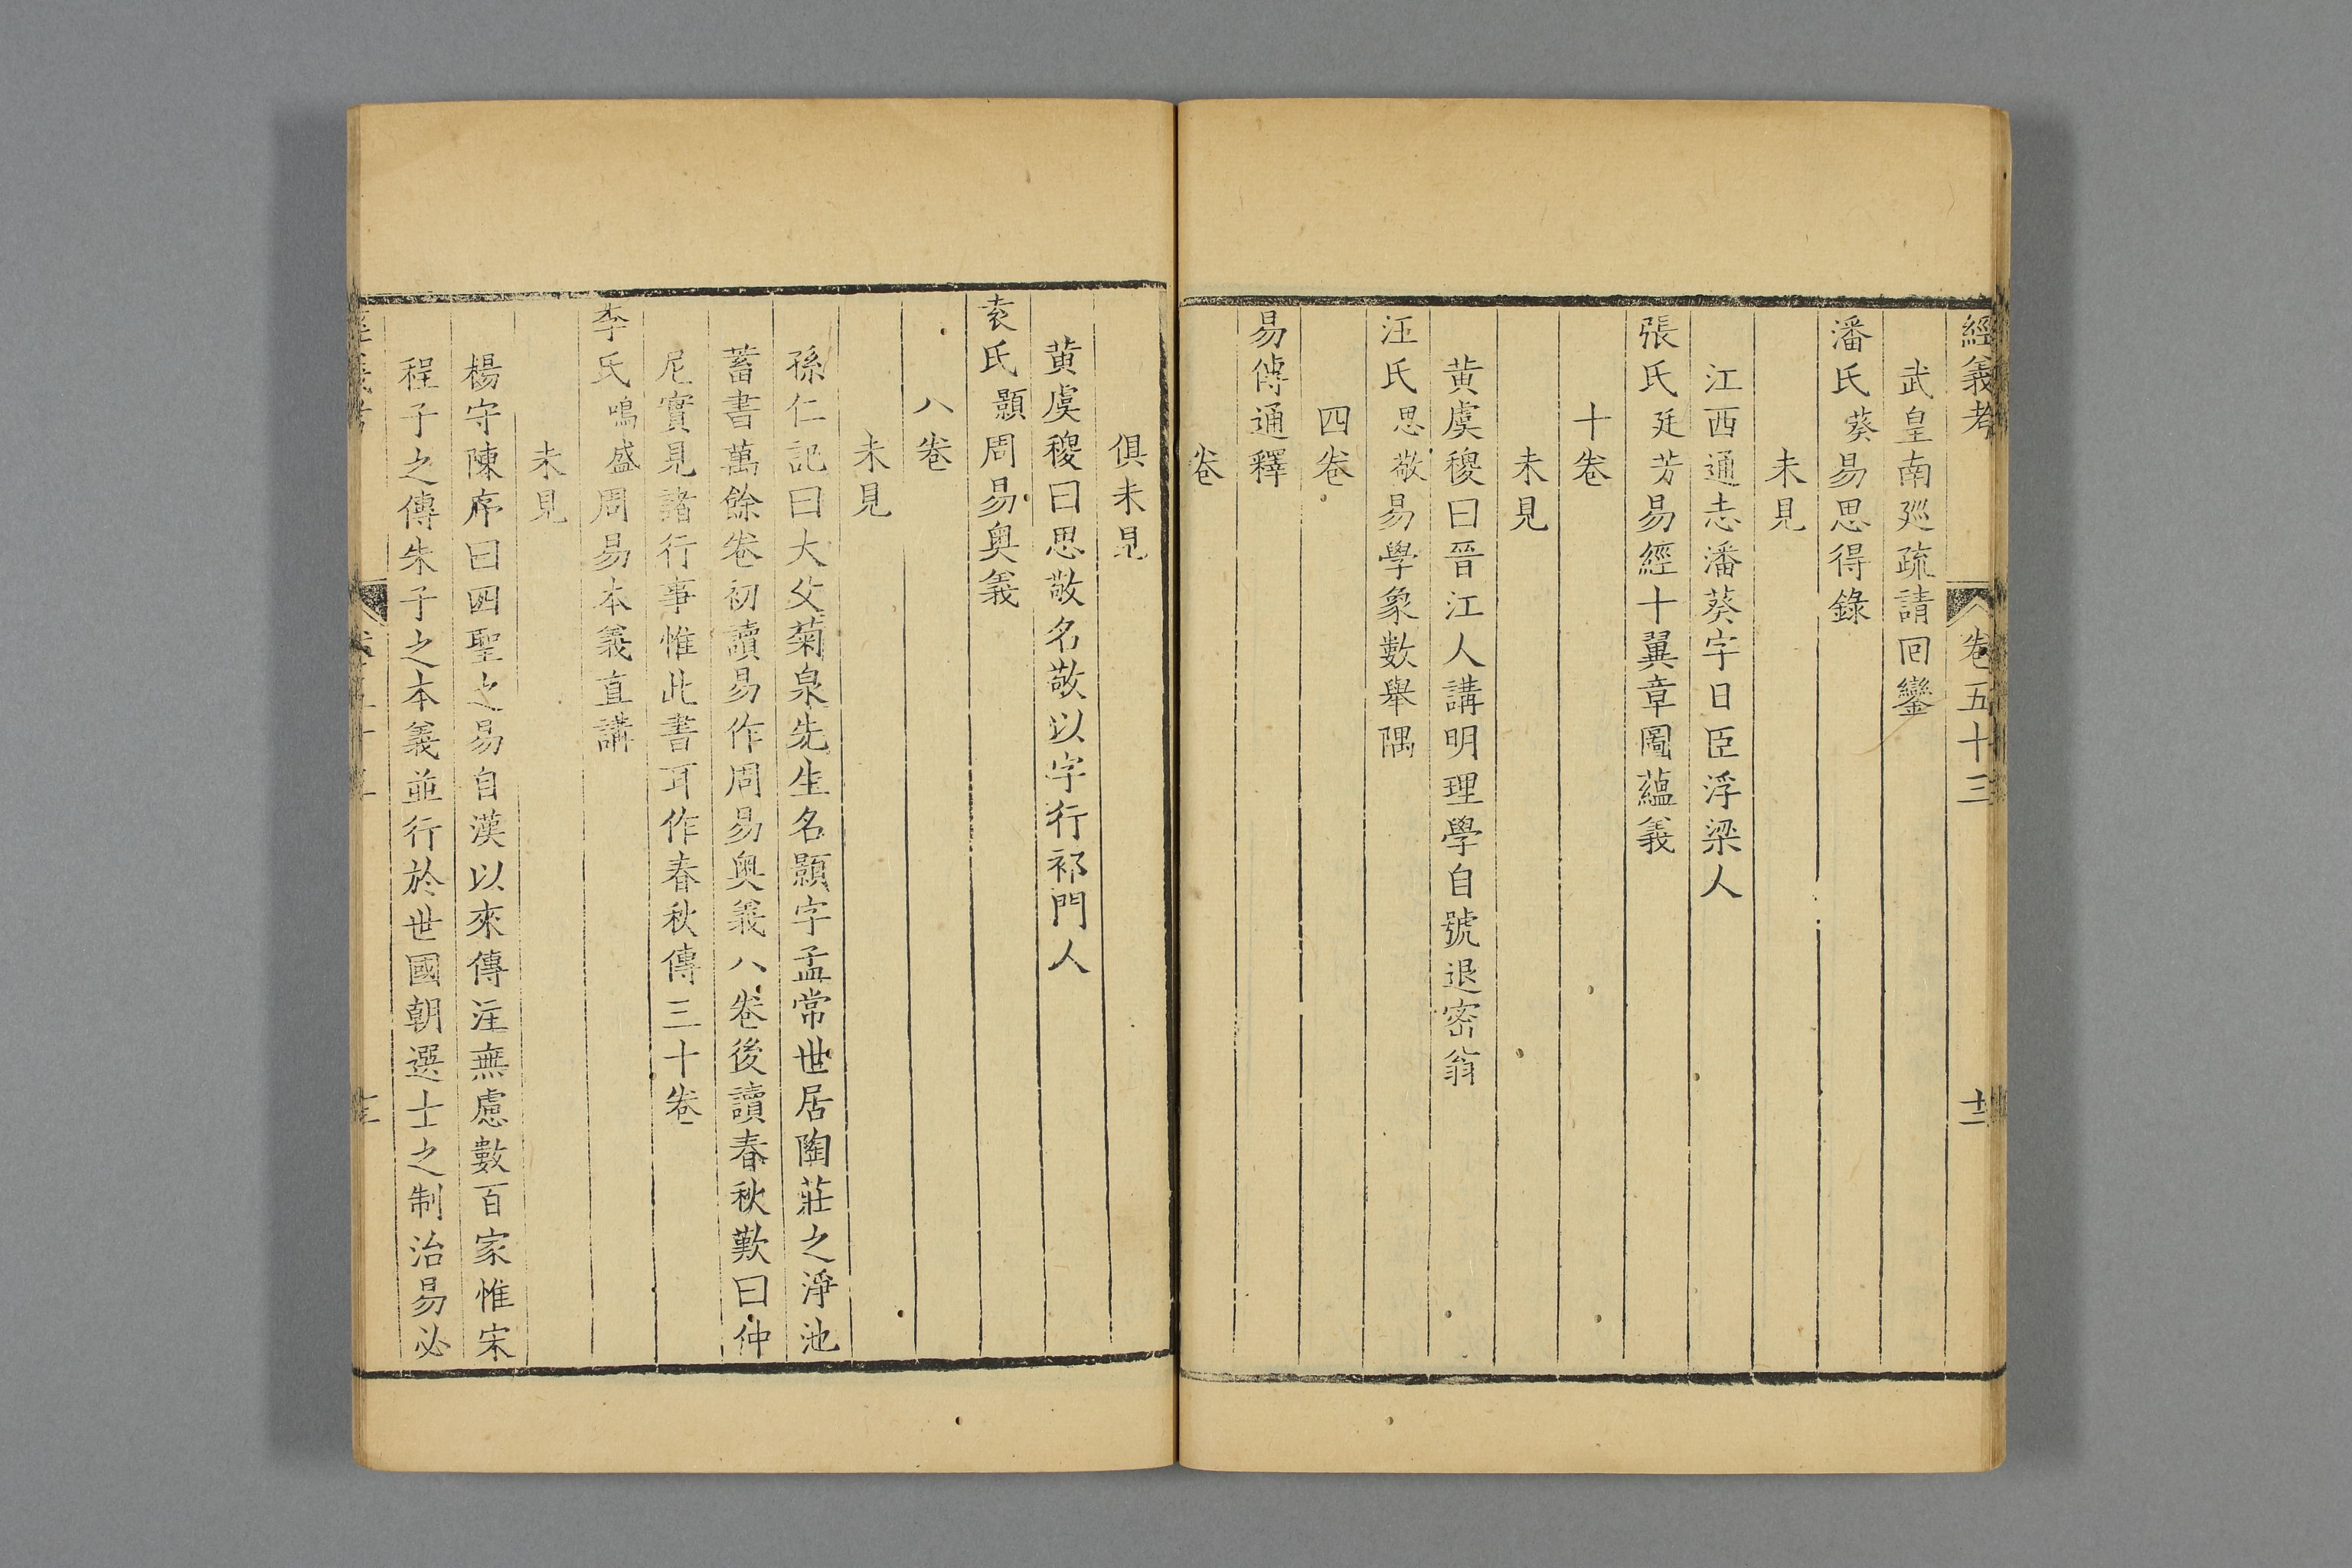 經義考
卷五十三
十二
武皇南廵疏請回鑾
潘氏葵易思得錄
未見
江西通志潘葵字日臣浮梁人
張氏廷芳易經十翼章圖蘊義
十卷
未見
黄虞稷曰晉江人講明理學自號退密翁
汪氏思敬易學象數舉隅
四卷
易傳通釋
卷
俱未見
黄虞稷曰思敬名敬以字行祁門人
袁氏顥周易奥義
八卷
未見
孫仁記曰大父菊泉先生名顥字孟常世居陶莊之淨池
蓄書萬餘卷初讀易作周易奥義八卷後讀春秋歎曰仲
尼實見諸行事惟此書耳作春秋傳三十卷
李氏鳴盛周易本義直講
未見
楊守陳序曰四聖之易自漢以來傳注無慮數百家惟宋
程子之傳朱子之本義並行於世國朝選士之制治易必